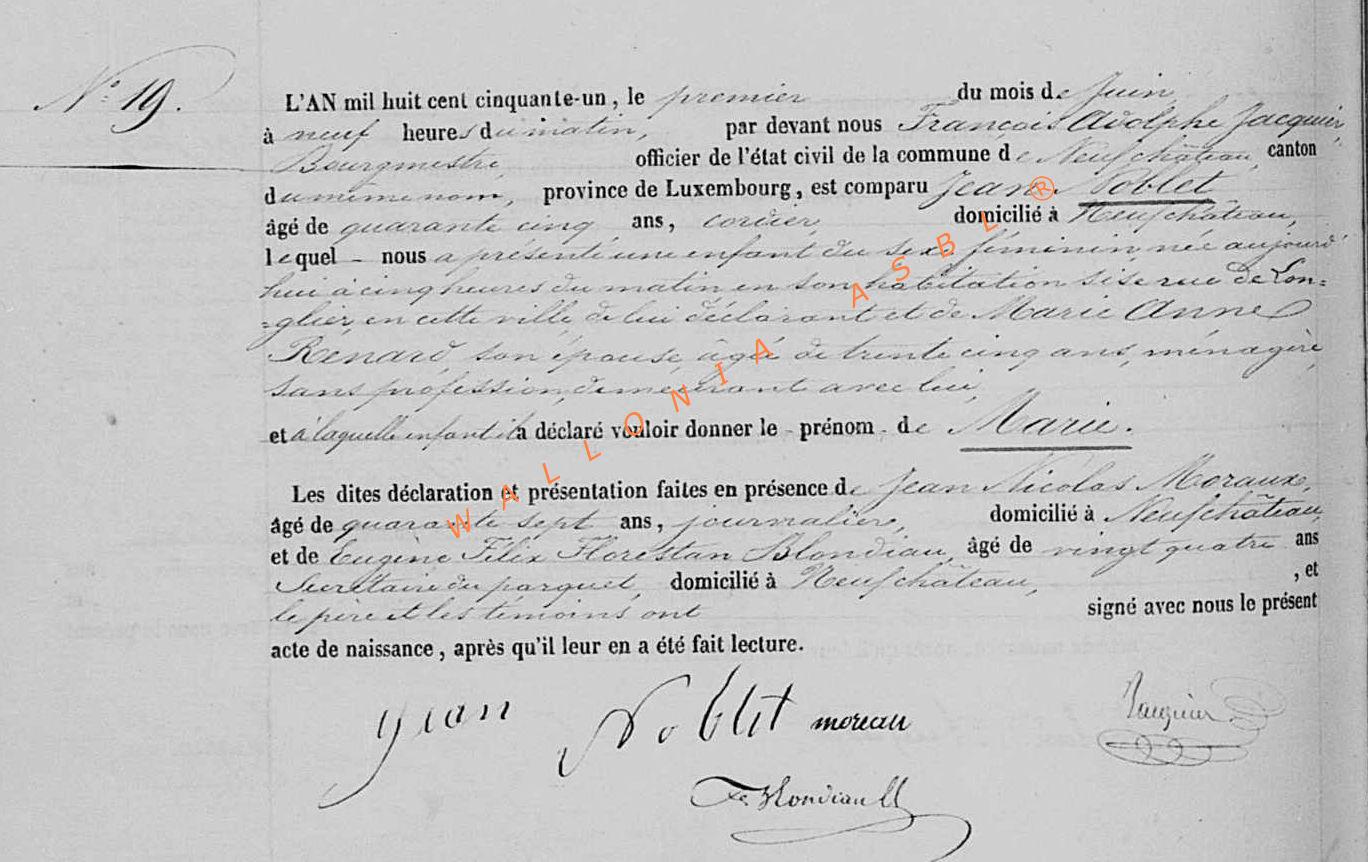 N.° 19.
L'AN mil huit cent cinquante-un, le premier du mois de Juin
à neuf heures du matin, par devant nous François Adolphe Jacquier,
Bourgmestre, officier de l'état civil de la commune de Neufchâteau, canton
du même nom, province de Luxembourg, est comparu Jean Noblet
âgé de quarante cinq ans, cordier, domicilié à Neufchâteau,
lequel - nous a présenté une enfant du sexe féminin, née aujourd'
hui à cinq heures du matin en son habitation sise rue de Lon=
=glier, en cette ville, de lui déclarant et de Marie Anne
Renard son épouse, âgée de trente cinq ans, ménagère
sans profession, demeurant avec lui,
et à laquelle enfant il a déclaré vouloir donner le - prénom - de Marie.
Les dites déclaration et présentation faites en présence de Jean Nicolas Moraux,
âgé de quarante sept ans, journalier, domicilié à Neufchâteau,
et de Eugène Félix Florestan Blondiau, âgé de vingt quatre ans
Secrétaire du parquet, domicilié à Neufchâteau, , et
le père et les temoins ont signé avec nous le présent
acte de naissance, après qu'il leur en a été fait lecture.
Jean Noblet moreau Jacquier
Fx Blondiau
WALLONIA ASBL ®